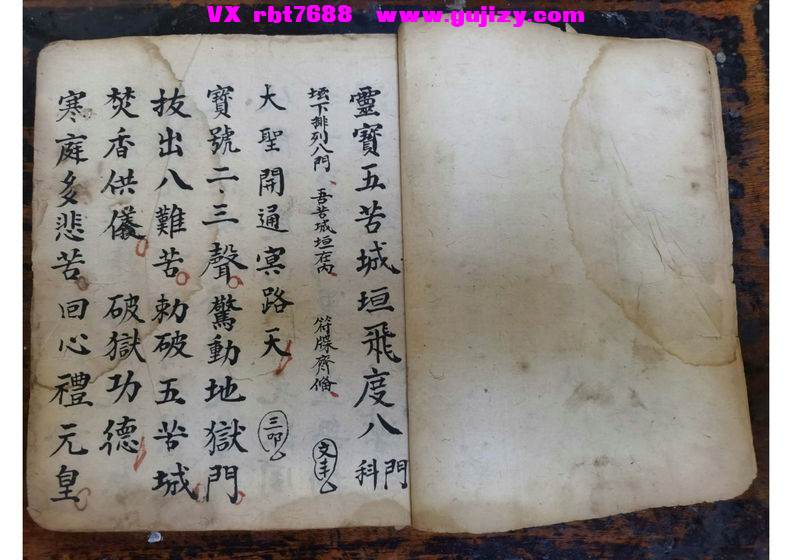 VX rbt7688 www.gujizy.com
靈寶五苦城垣飛度八門科
壇下排列八門 吾苦城垣在內 符牒齊俻
大聖開通冥路天 三叩
寶號二三聲驚動地獄門
抜出八難苦勅破五苦城
焚香供儀 破獄功德
寒庭多悲苦回心禮元皇